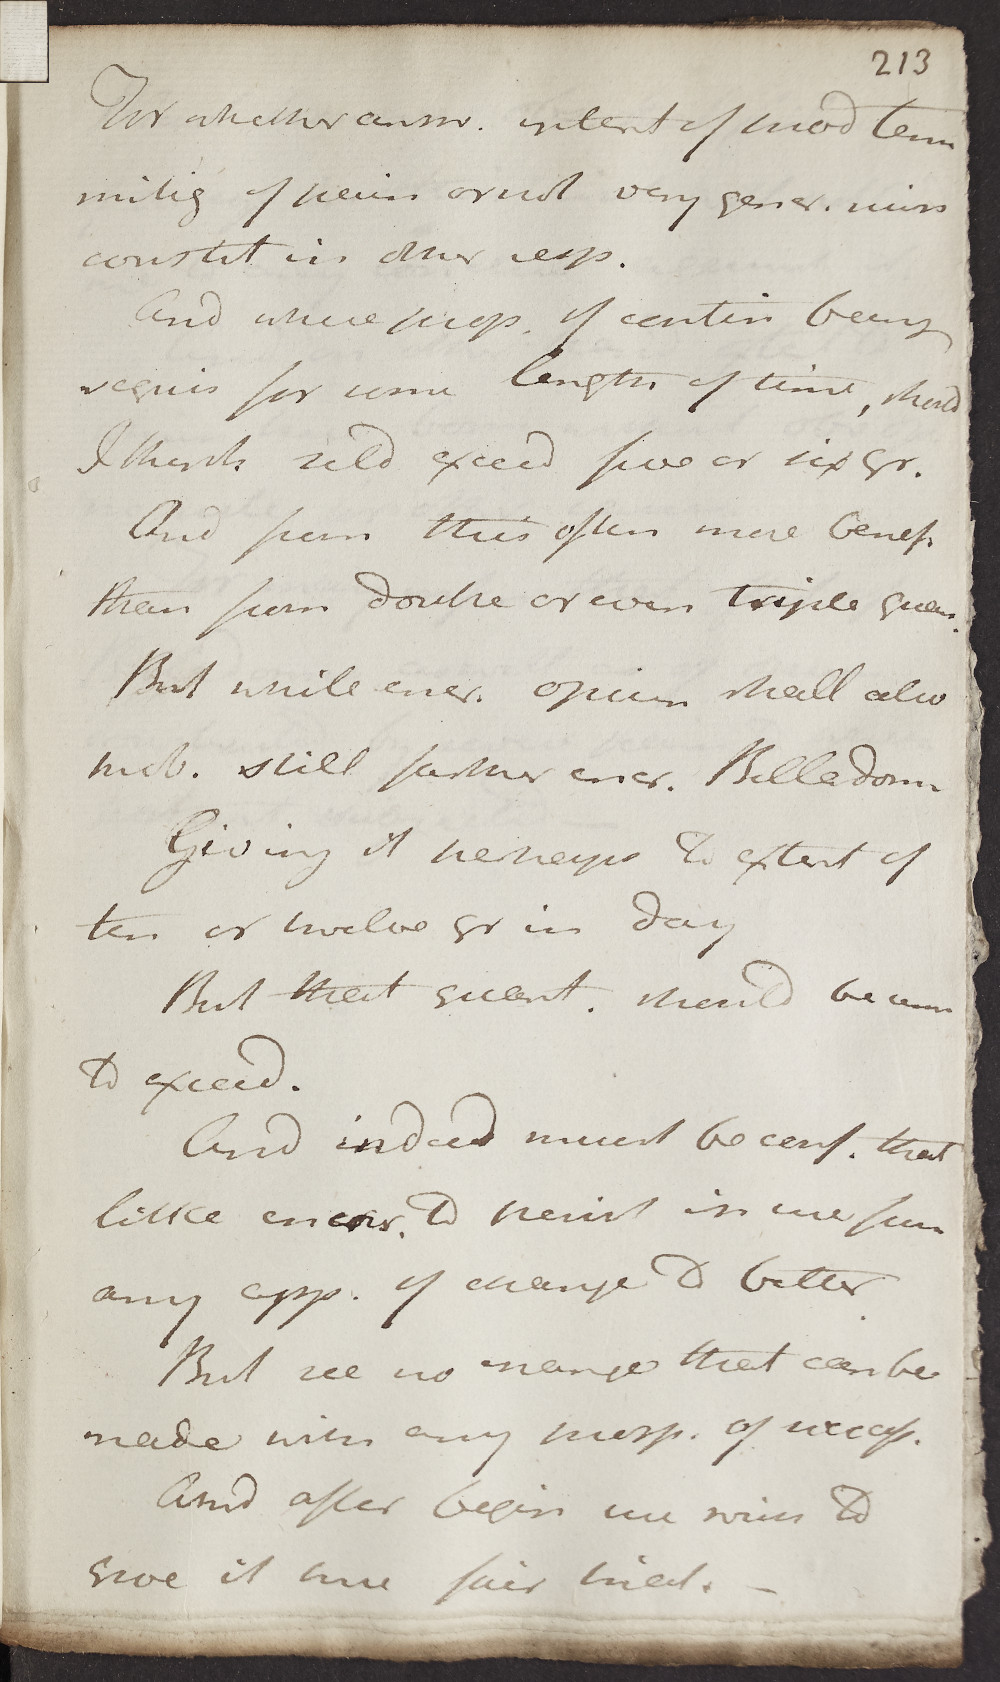 213
For whether answ. intent of mod term
mitig of pain or not very gener. inju
constit in other resp.
And where prop. of contin being
requis for some length of time, should
I think seld exceed five or six gr.
And from this often more benef.
than from double or even triple quan.
But while encr. opium shall also
prob. still farther encr. Belladonn
Giving it perhaps to extent of
ten or twelve gr in day
But that quant. should be
to exceed.
And indeed must be conf. that
little encour. to persist in use from
any app. of change to better
But see no change that can be
made with any prosp. of success.
And after begin use wish to
give it some fair trial. –